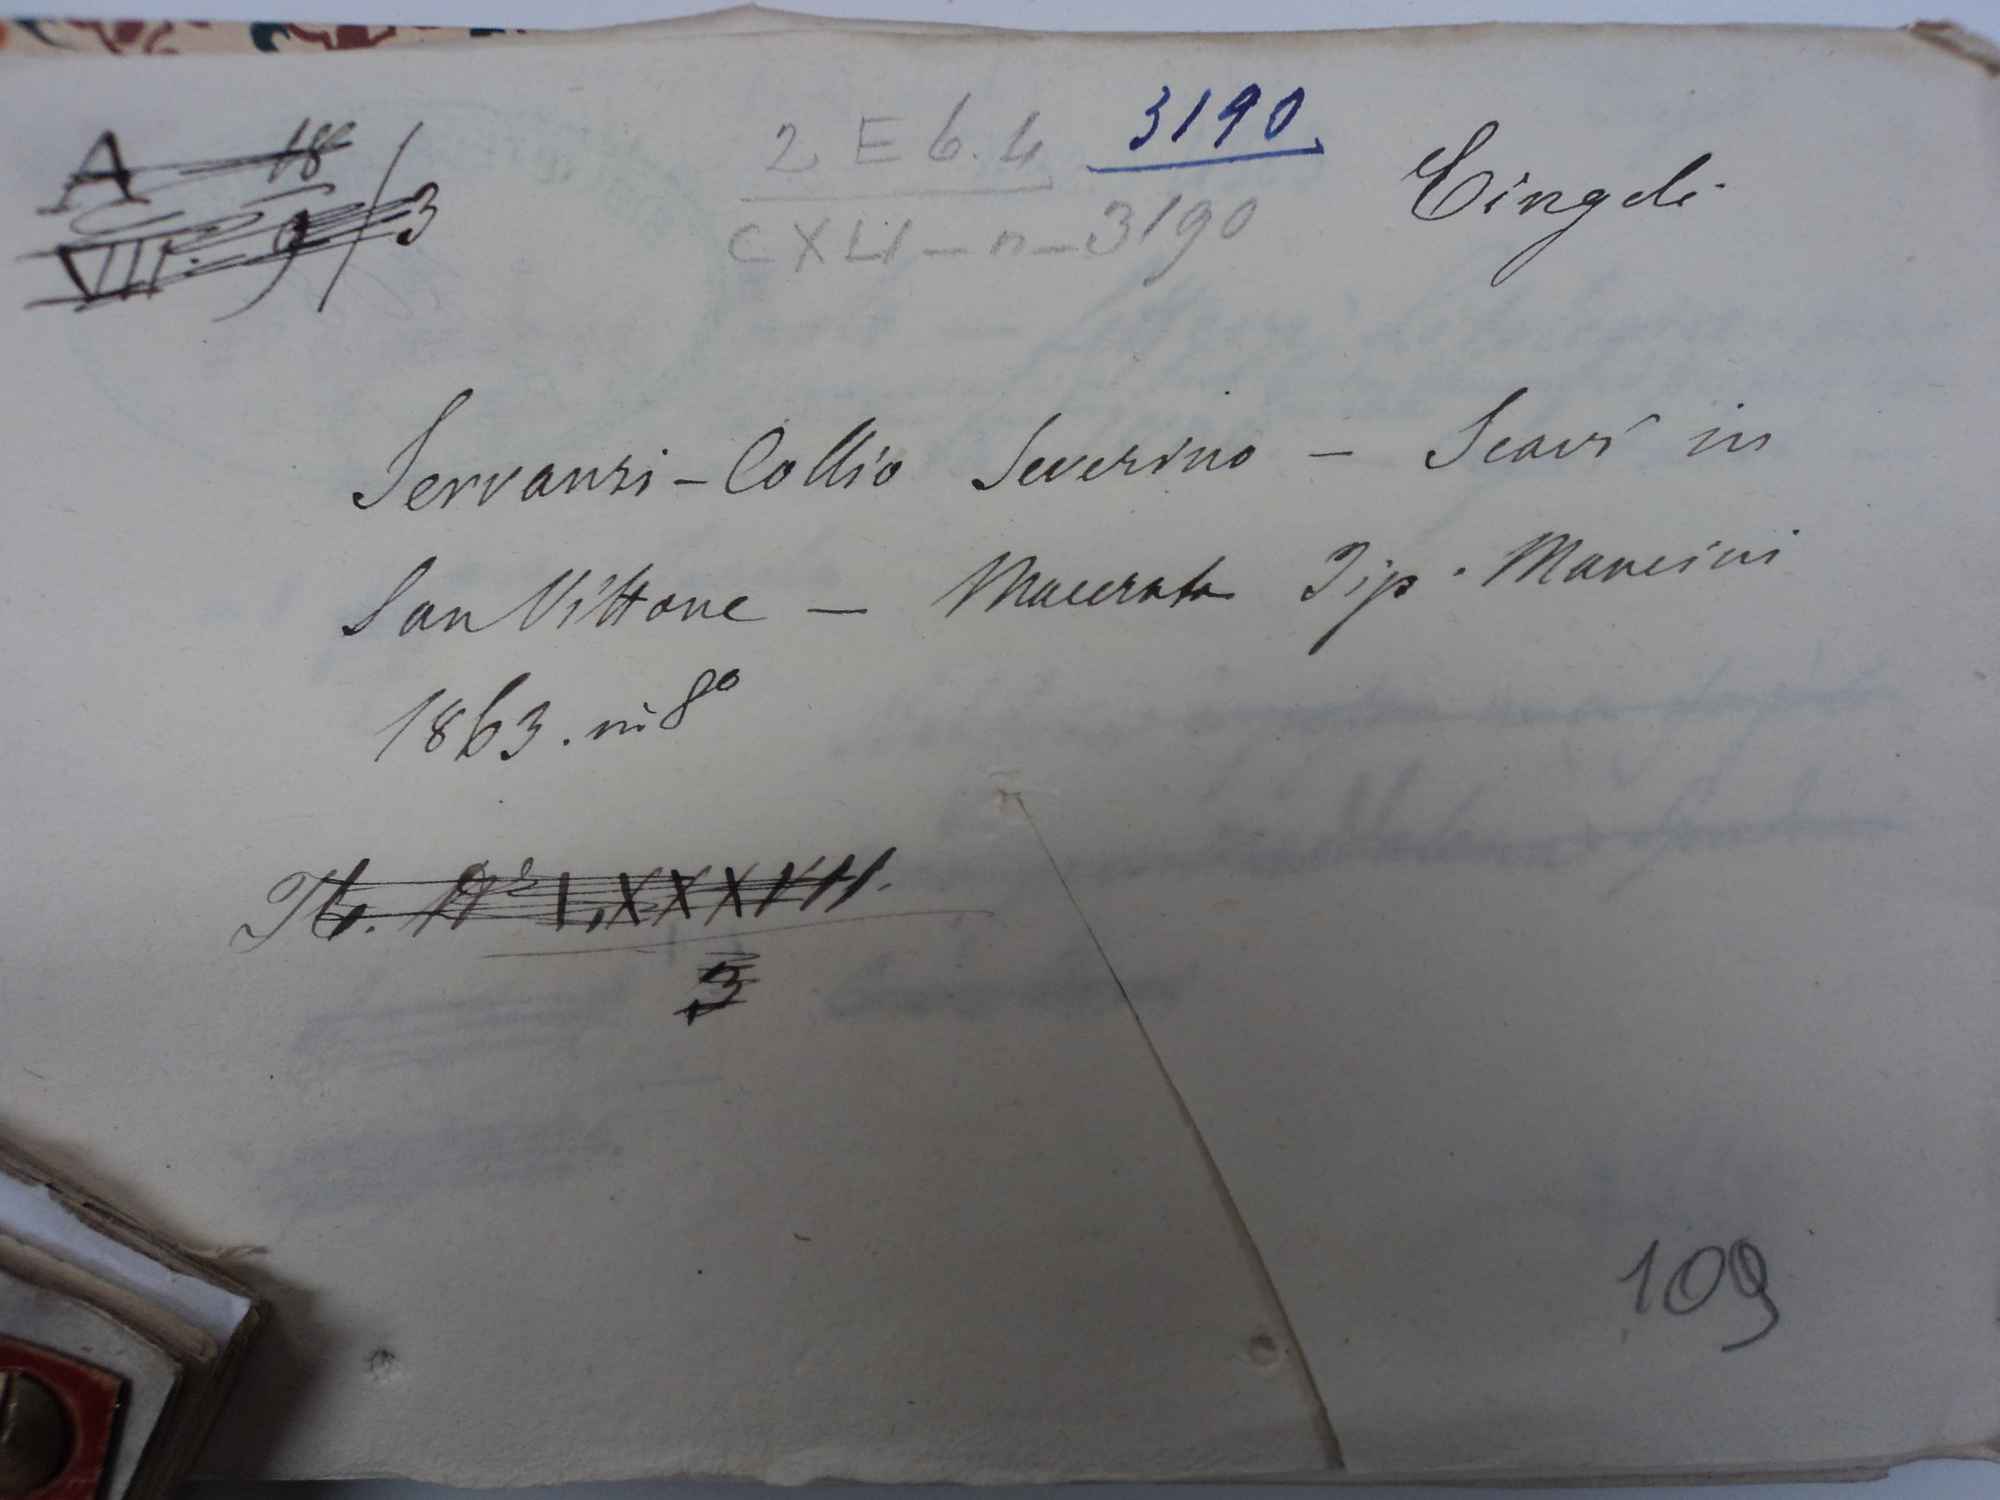 A 18
2 E 6. 4 3190 Cingoli
VII. 9/3
CXLI - n - 3190
Servanzi-Collio Severino - Scavi in
San Vittore - Macerata Tip. Mancini
1863. in 8º
Tt. Nº LXXXVII.
3
109